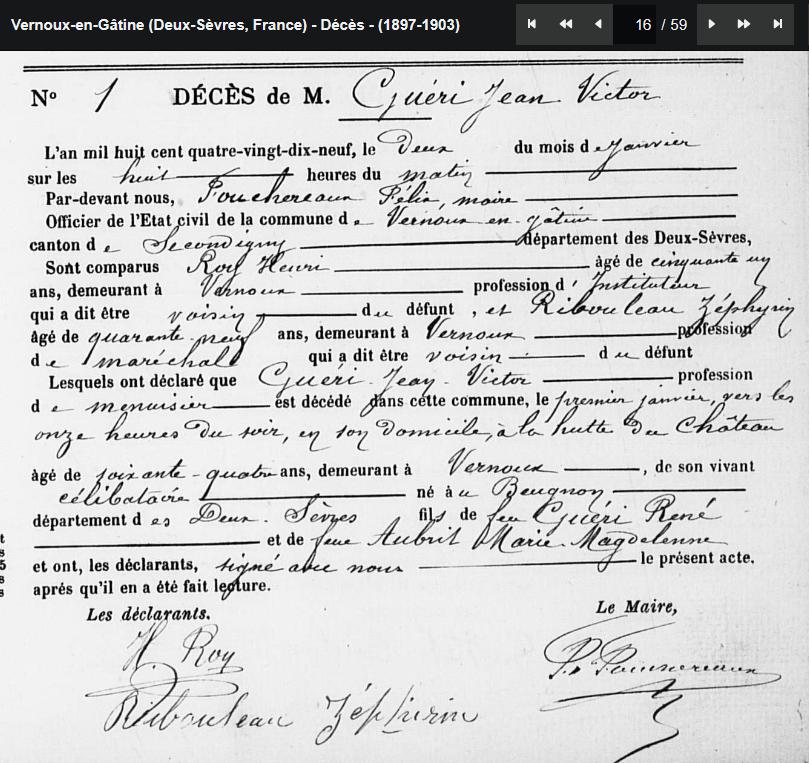 Vernoux-en-Gâtine (Deux-Sèvres, France) - Décès - (1897-1903)
16 / 59
N° 1 DÉCÈS de M. Guéri Jean Victor
L'an mil huit cent quatre-vingt-dix-neuf, le Deux du mois de Janvier
sur les huit heures du matin
Par-devant nous, Félix, maire
Officier de l'Etat civil de la commune de Vernoux-en-gâtine
canton de Secondigny département des Deux-Sèvres,
Sont comparus Roy Henri âgé de cinquante un
ans, demeurant à Vernoux profession d'Instituteur
qui a dit être voisin du défunt, et Ribouleau Zéphyrin
âgé de quarante-neuf ans, demeurant à Vernoux profession
de maréchal qui a dit être voisin du défunt
Lesquels ont déclaré que Guéri Jean Victor profession
de menuisier est décédé dans cette commune, le premier janvier, vers les
onze heures du soir, en son domicile, à la hutte du Château
âgé de soixante-quatre ans, demeurant à Vernoux, de son vivant
célibataire né au Beugnon
département des Deux-Sèvres fils de feu Guéri René
et de feue Aubrit Marie Magdelenne
et ont, les déclarants, signé avec nous le présent acte.
aprés qu'il en a été fait lecture.
t
s
5
s
s
Les déclarants. Le Maire,
H Roy
Ribouleau Zéphirin